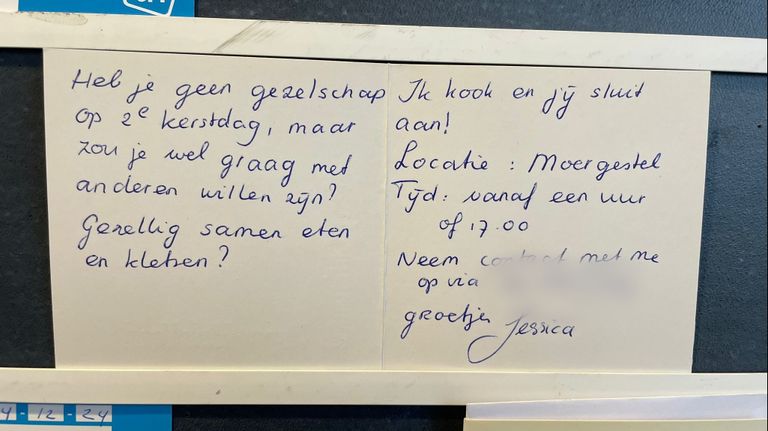 Heb je geen gezelschap
op 2e kerstdag, maar
zou je wel graag met
anderen willen zijn?
Gezellig samen eten
en kletsen?
Ik kook en jij sluit
aan!
Locatie : Moergestel
Tijd: vanaf een uur
of 17.00
Neem contact met me
op via
groetjes Jessica
4-12-24